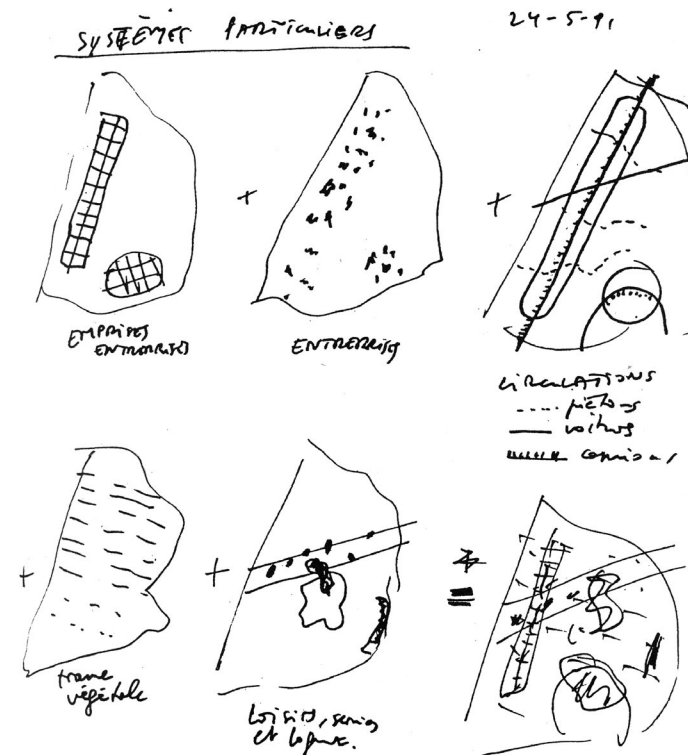 SYSTÈMES PARTICULIERS
24-5-91
+
+
EMPRISES
ENTREPRISES
ENTREPRISES
CIRCULATIONS
---- piétons
voitures
camions
+
+
=
trame
végétale
Loisirs, services
et logmt.